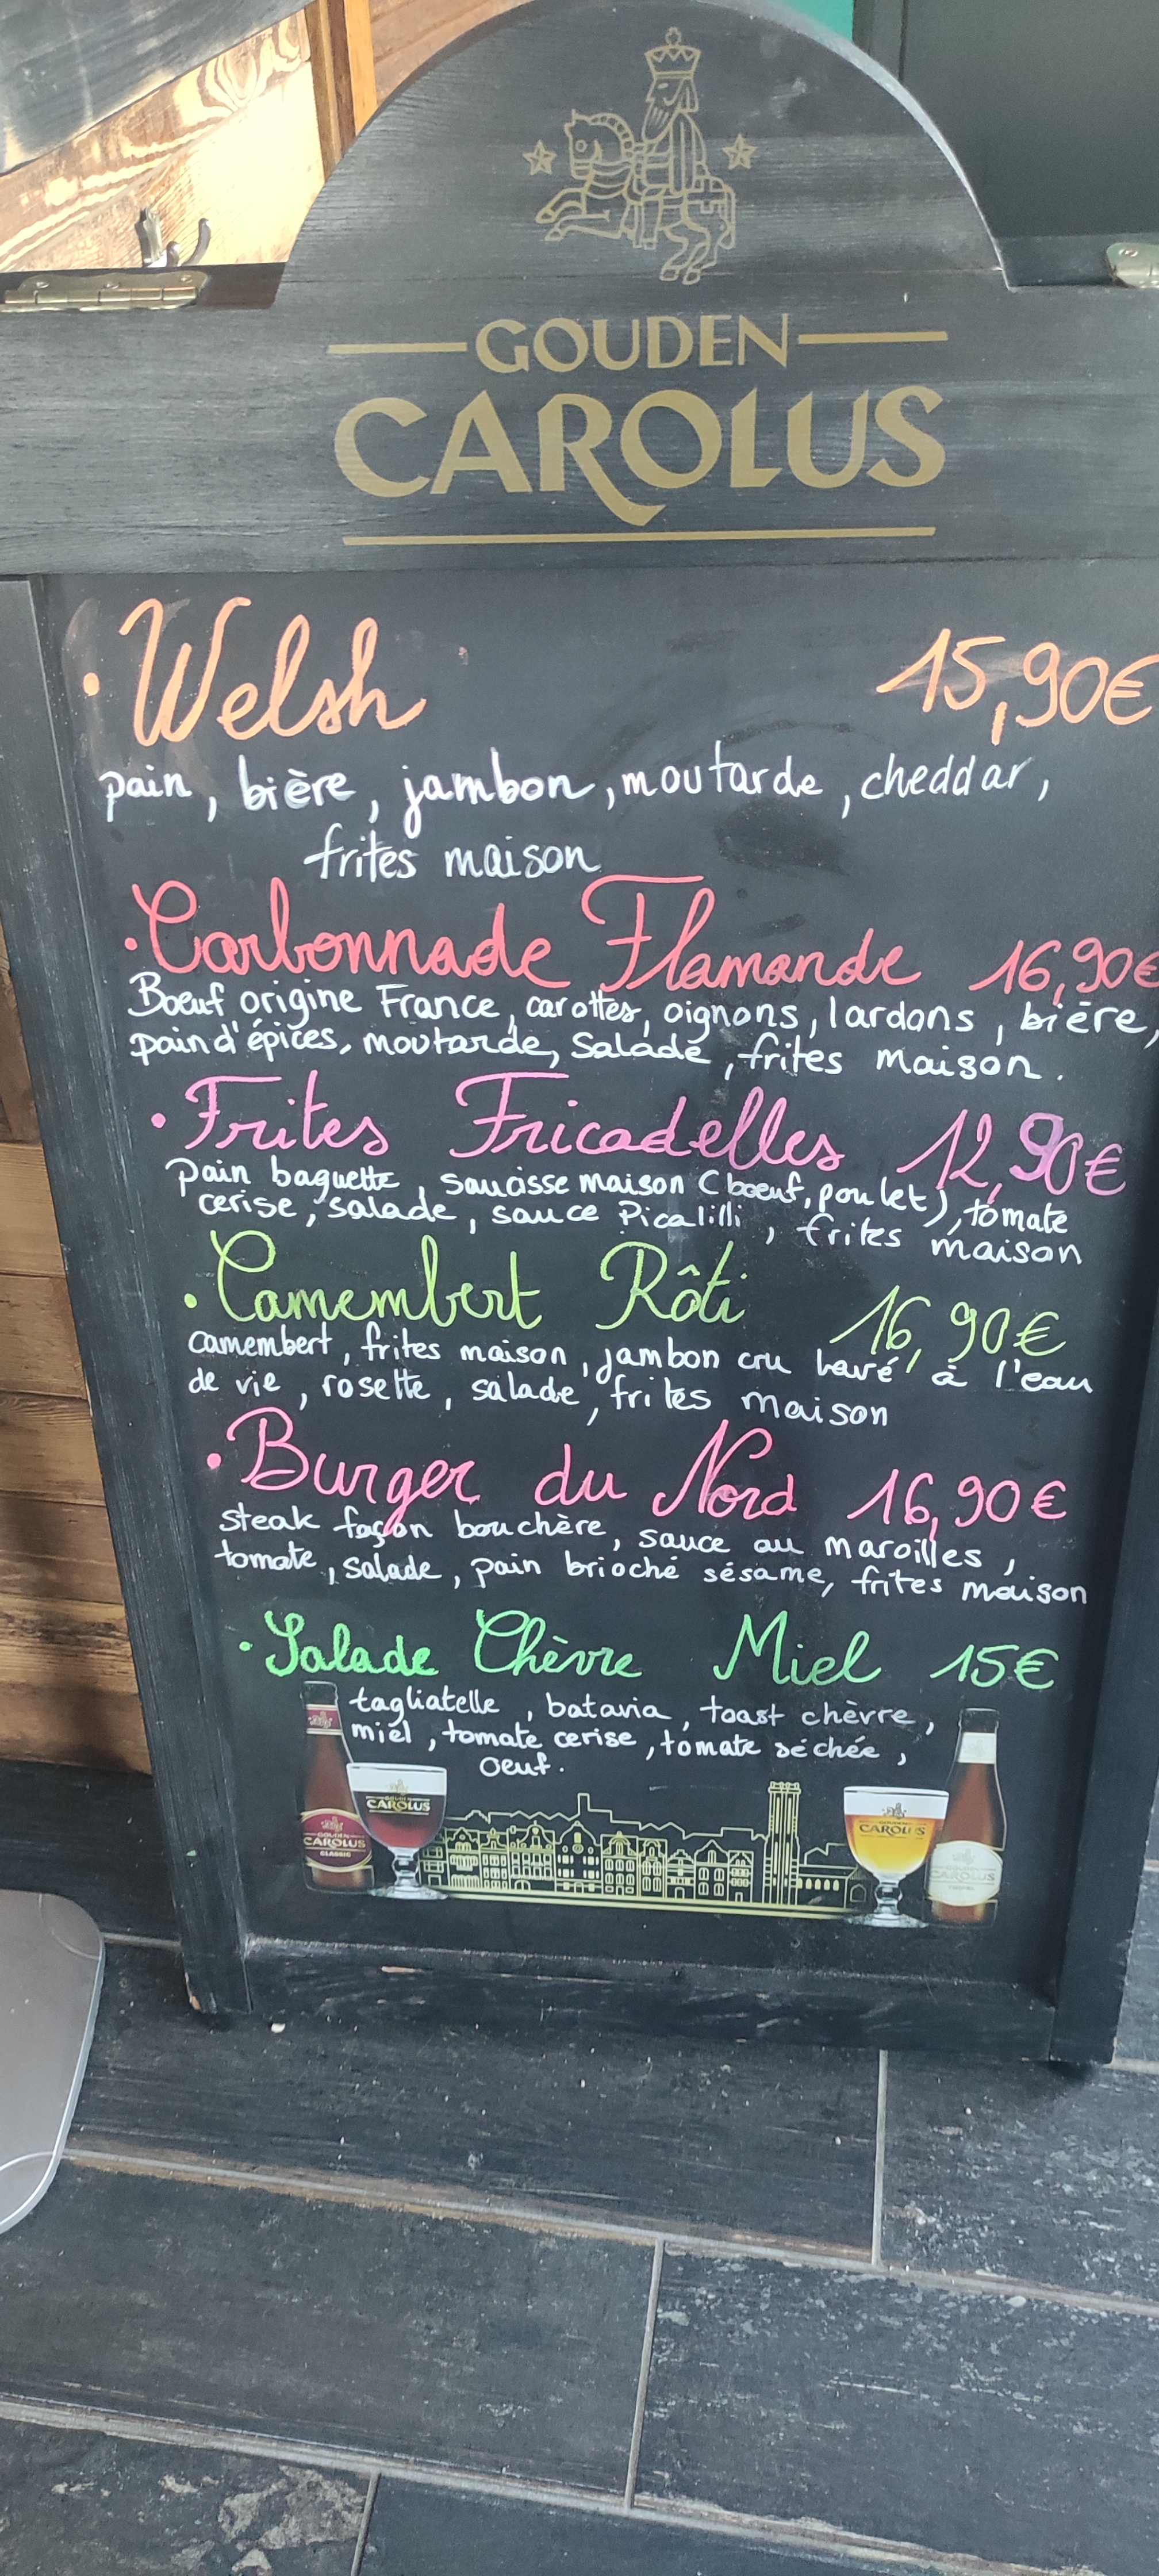 GOUDEN
CAROLUS
• Welsh 15,90€
pain, bière, jambon, moutarde, cheddar,
frites maison
• Carbonnade Flamande 16,90€
Boeuf origine France, carottes, oignons, lardons, bière,
pain d'épices, moutarde, Salade, frites maison.
• Frites Fricadelles 12,90€
pain baguette, saucisse maison (boeuf, poulet), tomate
cerise, salade, sauce Picalilli, frites maison
• Camembert Rôti 16,90€
camembert, frites maison, jambon cru lavé à l'eau
de vie, rosette, salade, frites maison
• Burger du Nord 16,90€
steak façon bouchère, sauce au maroilles,
tomate, salade, pain brioché sésame, frites maison
• Salade Chèvre Miel 15€
tagliatelle, batavia, toast chèvre,
miel, tomate cerise, tomate séchée,
oeuf.
CAROLUS
GOUDEN
CAROLUS
CLASSIC
CAROLUS
GOUDEN
CAROLUS